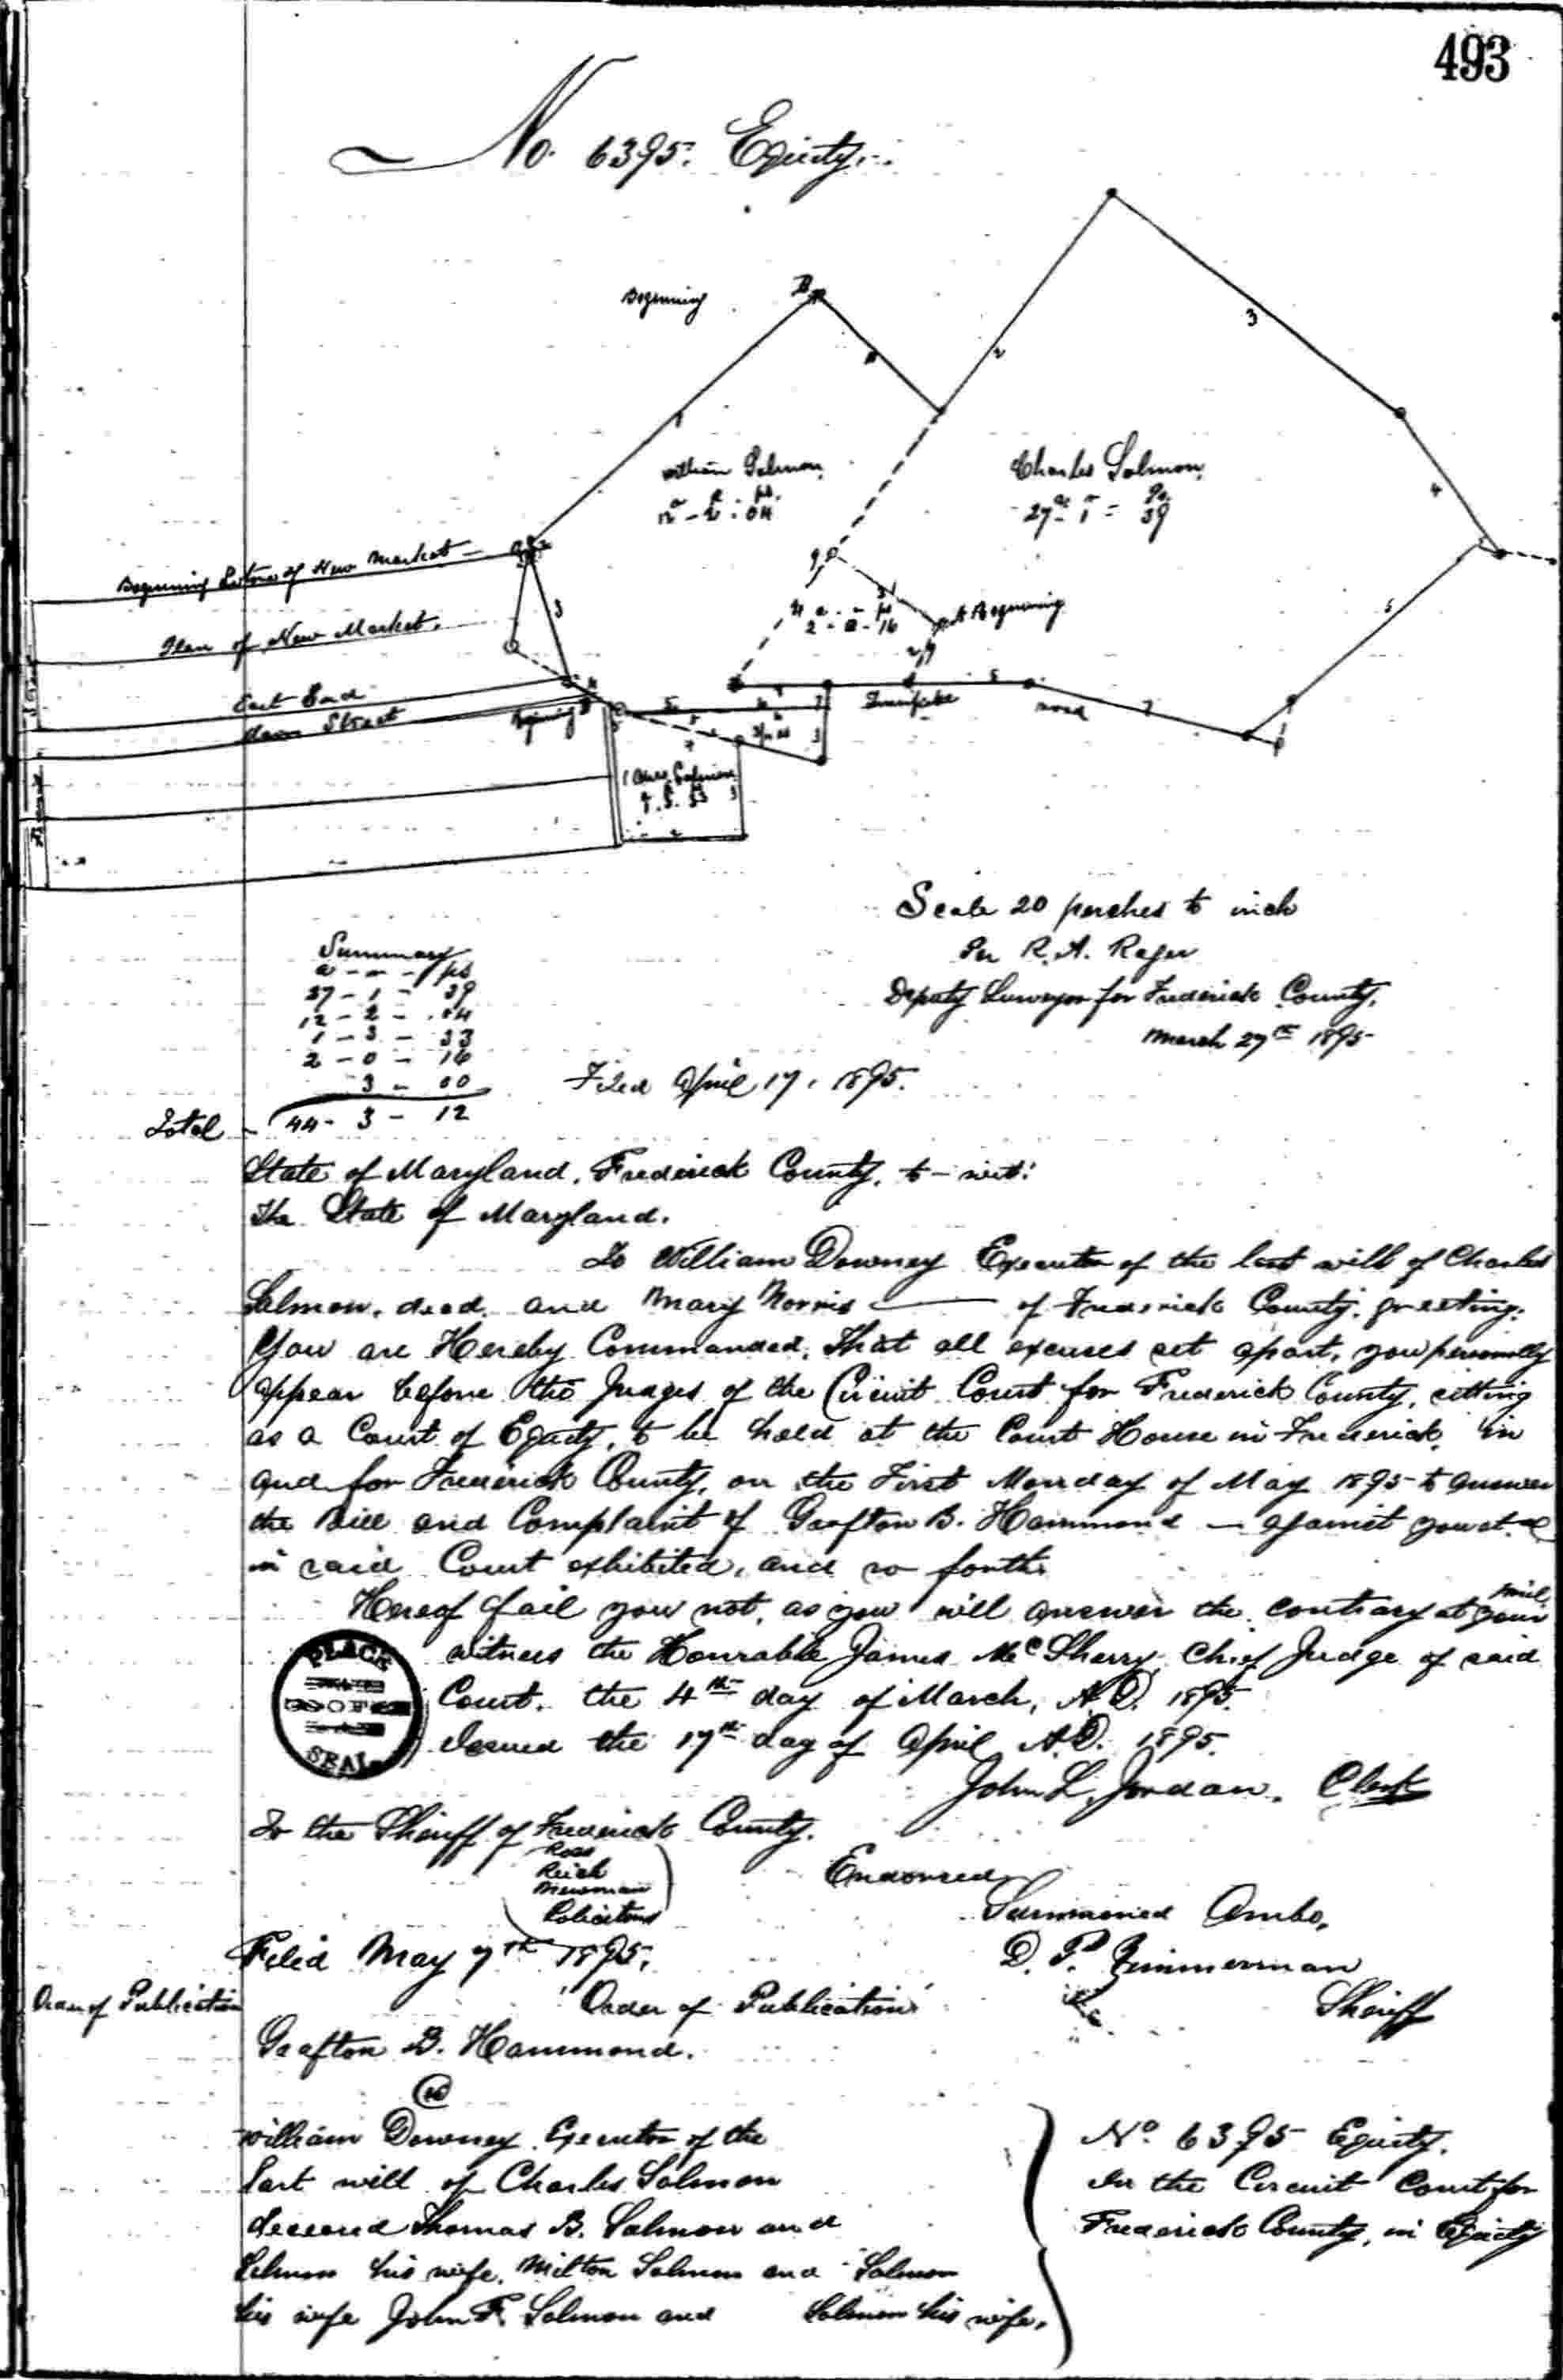 493
No. 6395. Equity.
Beginning
B
1
2
3
William Salmon
Charles Salmon
27 1 = 39
4
Beginning Lotno of New Market
Plan of New Market.
3
A Beginning
2 - 0 - 16
5
East End
Main Street
Beginning
5
Turnpike
road
7
Chas. Salmon
3
Scale 20 perches to inch
Per R. A. Rager
Deputy Surveyor for Frederick County.
March 27th 1895
Summary
a - r - ps
27 - 1 - 39
12 - 2 - 04
1 - 3 - 33
2 - 0 - 16
3 - 00
Total - 44 - 3 - 12
Filed April 17, 1895.
State of Maryland, Frederick County, to-wit:
The State of Maryland.
To William Downey Executor of the last will of Charles
Salmon, decd. and Mary Norris — of Frederick County, greeting.
You are Hereby Commanded, That all excuses set apart, you personally
appear before the Judges of the Circuit Court for Frederick County, sitting
as a Court of Equity, to be held at the Court House in Frederick, in
and for Frederick County, on the First Monday of May 1895 to answer
the Bill and Complaint of Grafton B. Hammond — against you et al
in said Court exhibited, and so forth.
Hereof fail you not, as you will answer the contrary at your peril.
Witness the Honrable James McSherry, Chief Judge of said
Court. the 4th day of March, A.D. 1895.
Issued the 17th day of April A.D. 1895.
PLACE
OF
SEAL
John L. Jordan. Clerk
To the Sheriff of Frederick County.
Ross
Reich
Newman
Solicitors
Endorsed
Summoned Ambo,
D. P. Zimmerman
Sheriff
Filed May 7th 1895.
Order of Publication
Order of Publication
Grafton B. Hammond.
vs
William Downey Executor of the
Last will of Charles Salmon
deceased Thomas B. Salmon and
Salmon his wife, Milton Salmon and Salmon
his wife John F. Salmon and Salmon his wife,
No. 6395 Equity.
In the Circuit Court for
Frederick County, in Equity